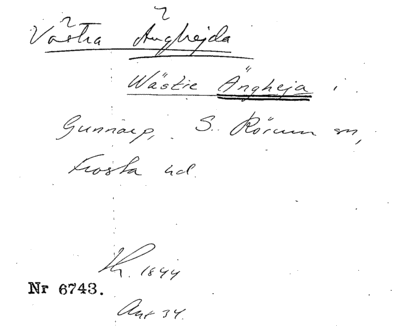 Västra Änghejda
Wästie Ängheja i
Gunnarp, S. Rörum sn,
Frosta hd.
1844
Nr 6743.
Ant 34.